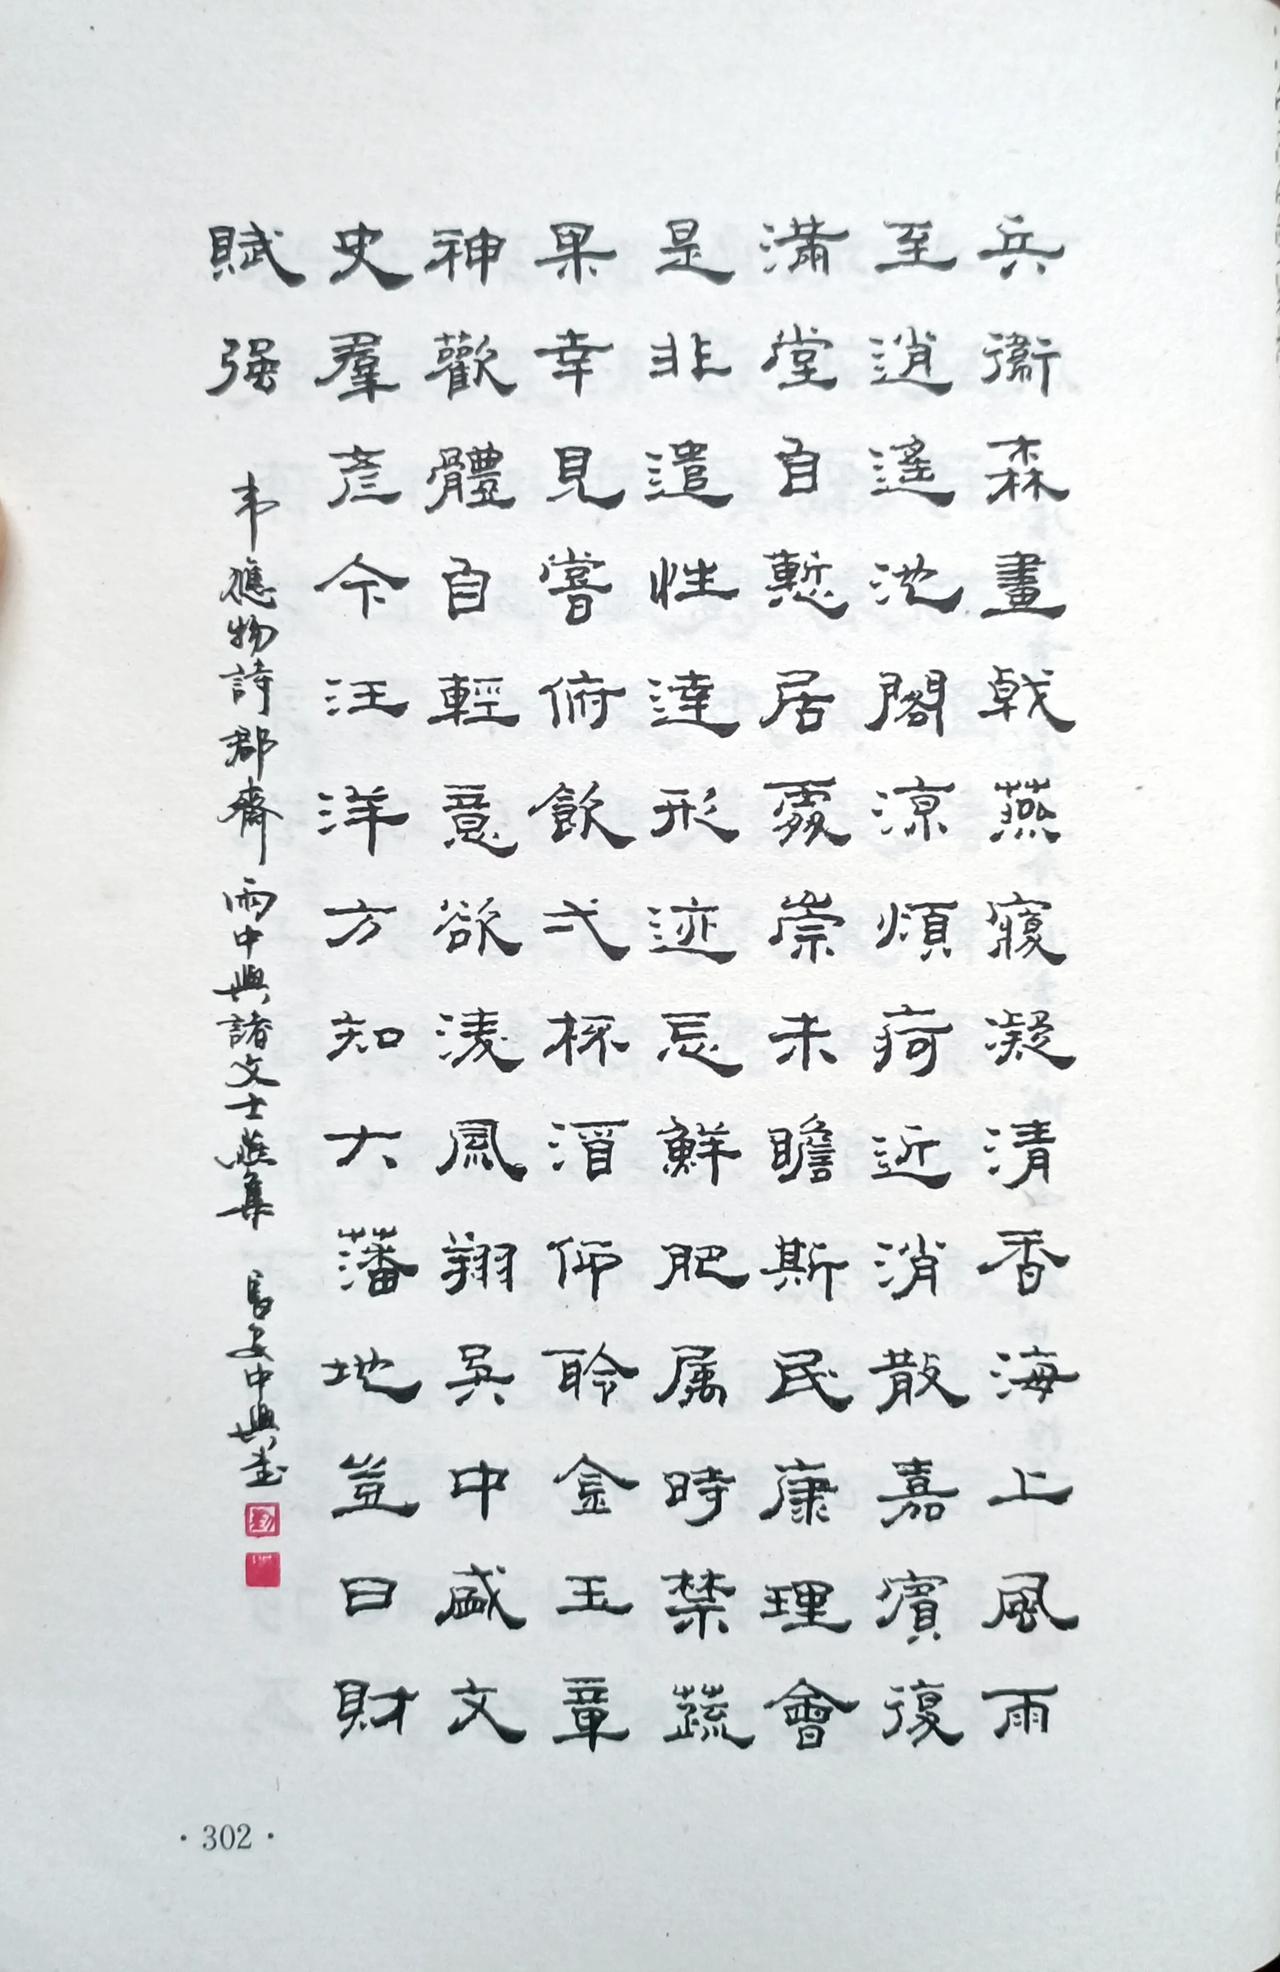 兵衛森畫戟燕寢凝清香海上風雨
至逍遙池閣涼煩疴近消散嘉賓復
滿堂自慙居處崇未瞻斯民康理會
是非遣性達形迹忘鮮肥属時禁蔬
果幸見嘗俯飲弌杯酒仰聆金玉章
神歡體自輕意欲淩風翔吳中盛文
史羣彥今汪洋方知大藩地豈曰財
賦强
韦應物詩郡齋雨中與諸文士燕集 長安中興書
·302·